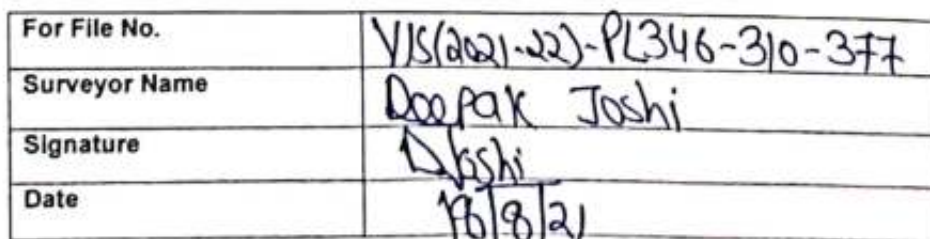 For File No. VIS(2021-22)-PL346-310-377
Surveyor Name Deepak Joshi
Signature DJoshi
Date 18/8/21